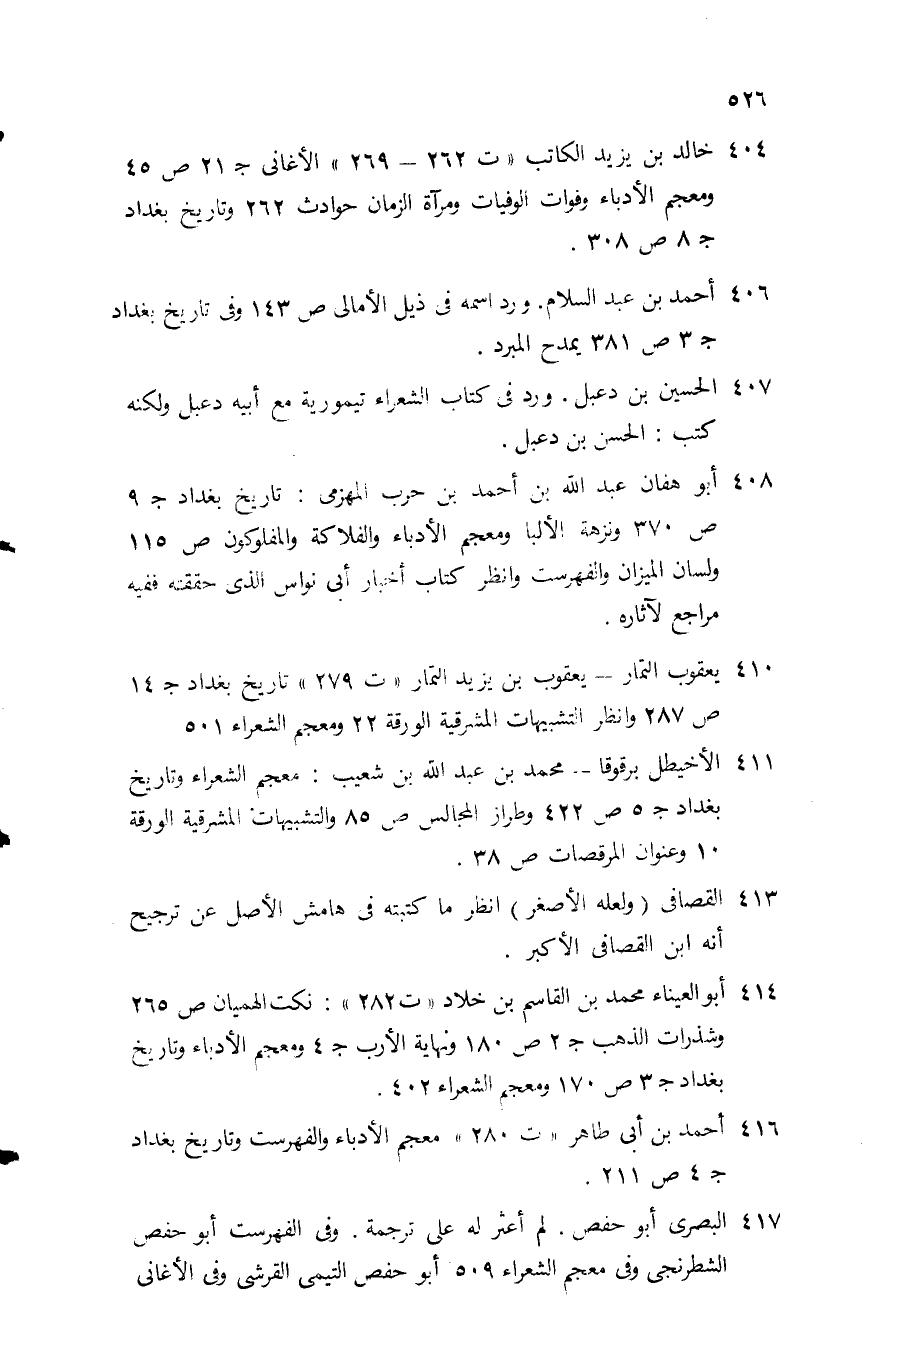 ٥٢٦
٤٠٤ خالد بن يزيد الكاتب « ت ٢٦٢ – ٢٦٩ » الأغانى ج ٢١ ص ٤٥
ومعجم الأدباء وفوات الوفيات ومرآة الزمان حوادث ٢٦٢ وتاريخ بغداد
ج ٨ ص ٣٠٨ .
٤٠٦ أحمد بن عبد السلام. ورد اسمه فى ذيل الأمالى ص ١٤٣ وفى تاريخ بغداد
ج ٣ ص ٣٨١ يمدح المبرد .
٤٠٧ الحسين بن دعبل . ورد فى كتاب الشعراء تيمورية مع أبيه دعبل ولكنه
كتب : الحسن بن دعبل .
٤٠٨ أبو هفان عبد الله بن أحمد بن حرب المهزمى : تاريخ بغداد ج ٩
ص ٣٧٠ ونزهة الألبا ومعجم الأدباء والفلاكة والمفلوكون ص ١١٥
ولسان الميزان والفهرست وانظر كتاب أخبار أبى نواس الذى حققته ففيه
مراجع لآثاره .
٤١٠ يعقوب التمار – يعقوب بن يزيد التمار « ت ٢٧٩ » تاريخ بغداد ج ١٤
ص ٢٨٧ وانظر التشبيهات المشرقية الورقة ٢٢ ومعجم الشعراء ٥٠١
٤١١ الأخيطل برقوقا – محمد بن عبد الله بن شعيب : معجم الشعراء وتاريخ
بغداد ج ٥ ص ٤٢٢ وطراز المجالس ص ٨٥ والتشبيهات المشرقية الورقة
١٠ وعنوان المرقصات ص ٣٨ .
٤١٣ القصافى ( ولعله الأصغر ) انظر ما كتبته فى هامش الأصل عن ترجيح
أنه ابن القصافى الأكبر .
٤١٤ أبو العيناء محمد بن القاسم بن خلاد « ت ٢٨٢ » : نكت الهميان ص ٢٦٥
وشذرات الذهب ج ٢ ص ١٨٠ ونهاية الأرب ج ٤ ومعجم الأدباء وتاريخ
بغداد ج ٣ ص ١٧٠ ومعجم الشعراء ٤٠٢ .
٤١٦ أحمد بن أبى طاهر « ت ٢٨٠ » معجم الأدباء والفهرست وتاريخ بغداد
ج ٤ ص ٢١١ .
٤١٧ البصرى أبو حفص . لم أعثر له على ترجمة . وفى الفهرست أبو حفص
الشطرنجى وفى معجم الشعراء ٥٠٩ أبو حفص التيمى القرشى وفى الأغانى